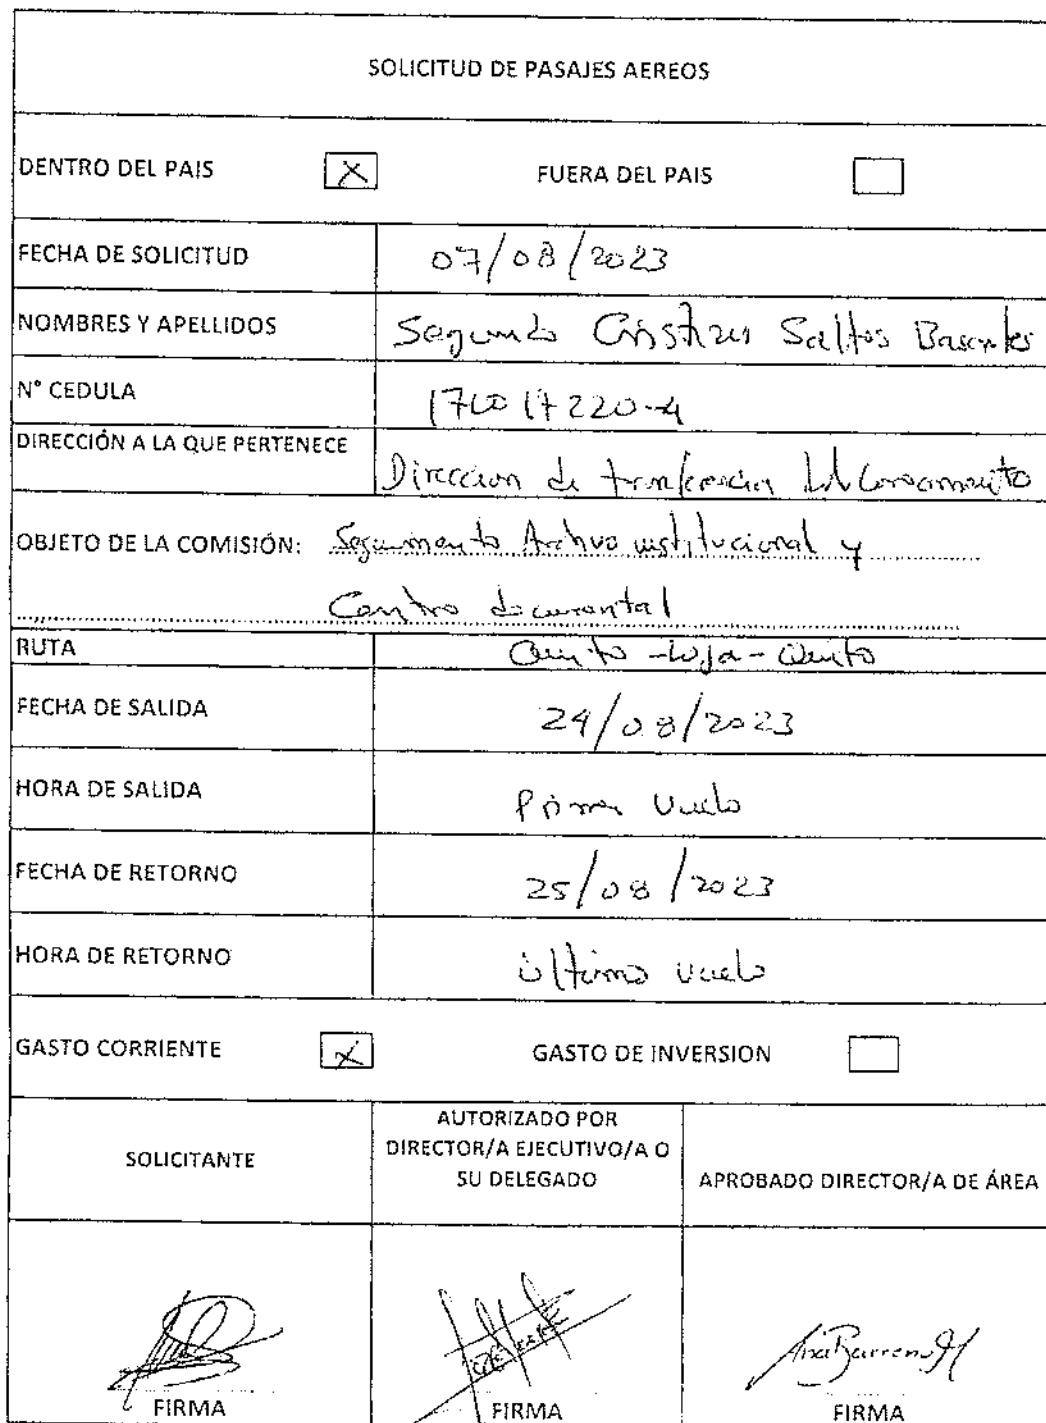 SOLICITUD DE PASAJES AEREOS
DENTRO DEL PAIS X FUERA DEL PAIS
FECHA DE SOLICITUD 07/08/2023
NOMBRES Y APELLIDOS Segundo Cristian Saltos Basantes
N° CEDULA
DIRECCIÓN A LA QUE PERTENECE Direccion de del
OBJETO DE LA COMISIÓN: Seguimiento Archivo institucional y
Centro documental
RUTA Quito - Loja - Quito
FECHA DE SALIDA 24/08/2023
HORA DE SALIDA Primer Vuelo
FECHA DE RETORNO 25/08/2023
HORA DE RETORNO último vuelo
GASTO CORRIENTE X GASTO DE INVERSION
SOLICITANTE
AUTORIZADO POR
DIRECTOR/A EJECUTIVO/A O
SU DELEGADO
APROBADO DIRECTOR/A DE ÁREA
FIRMA FIRMA FIRMA